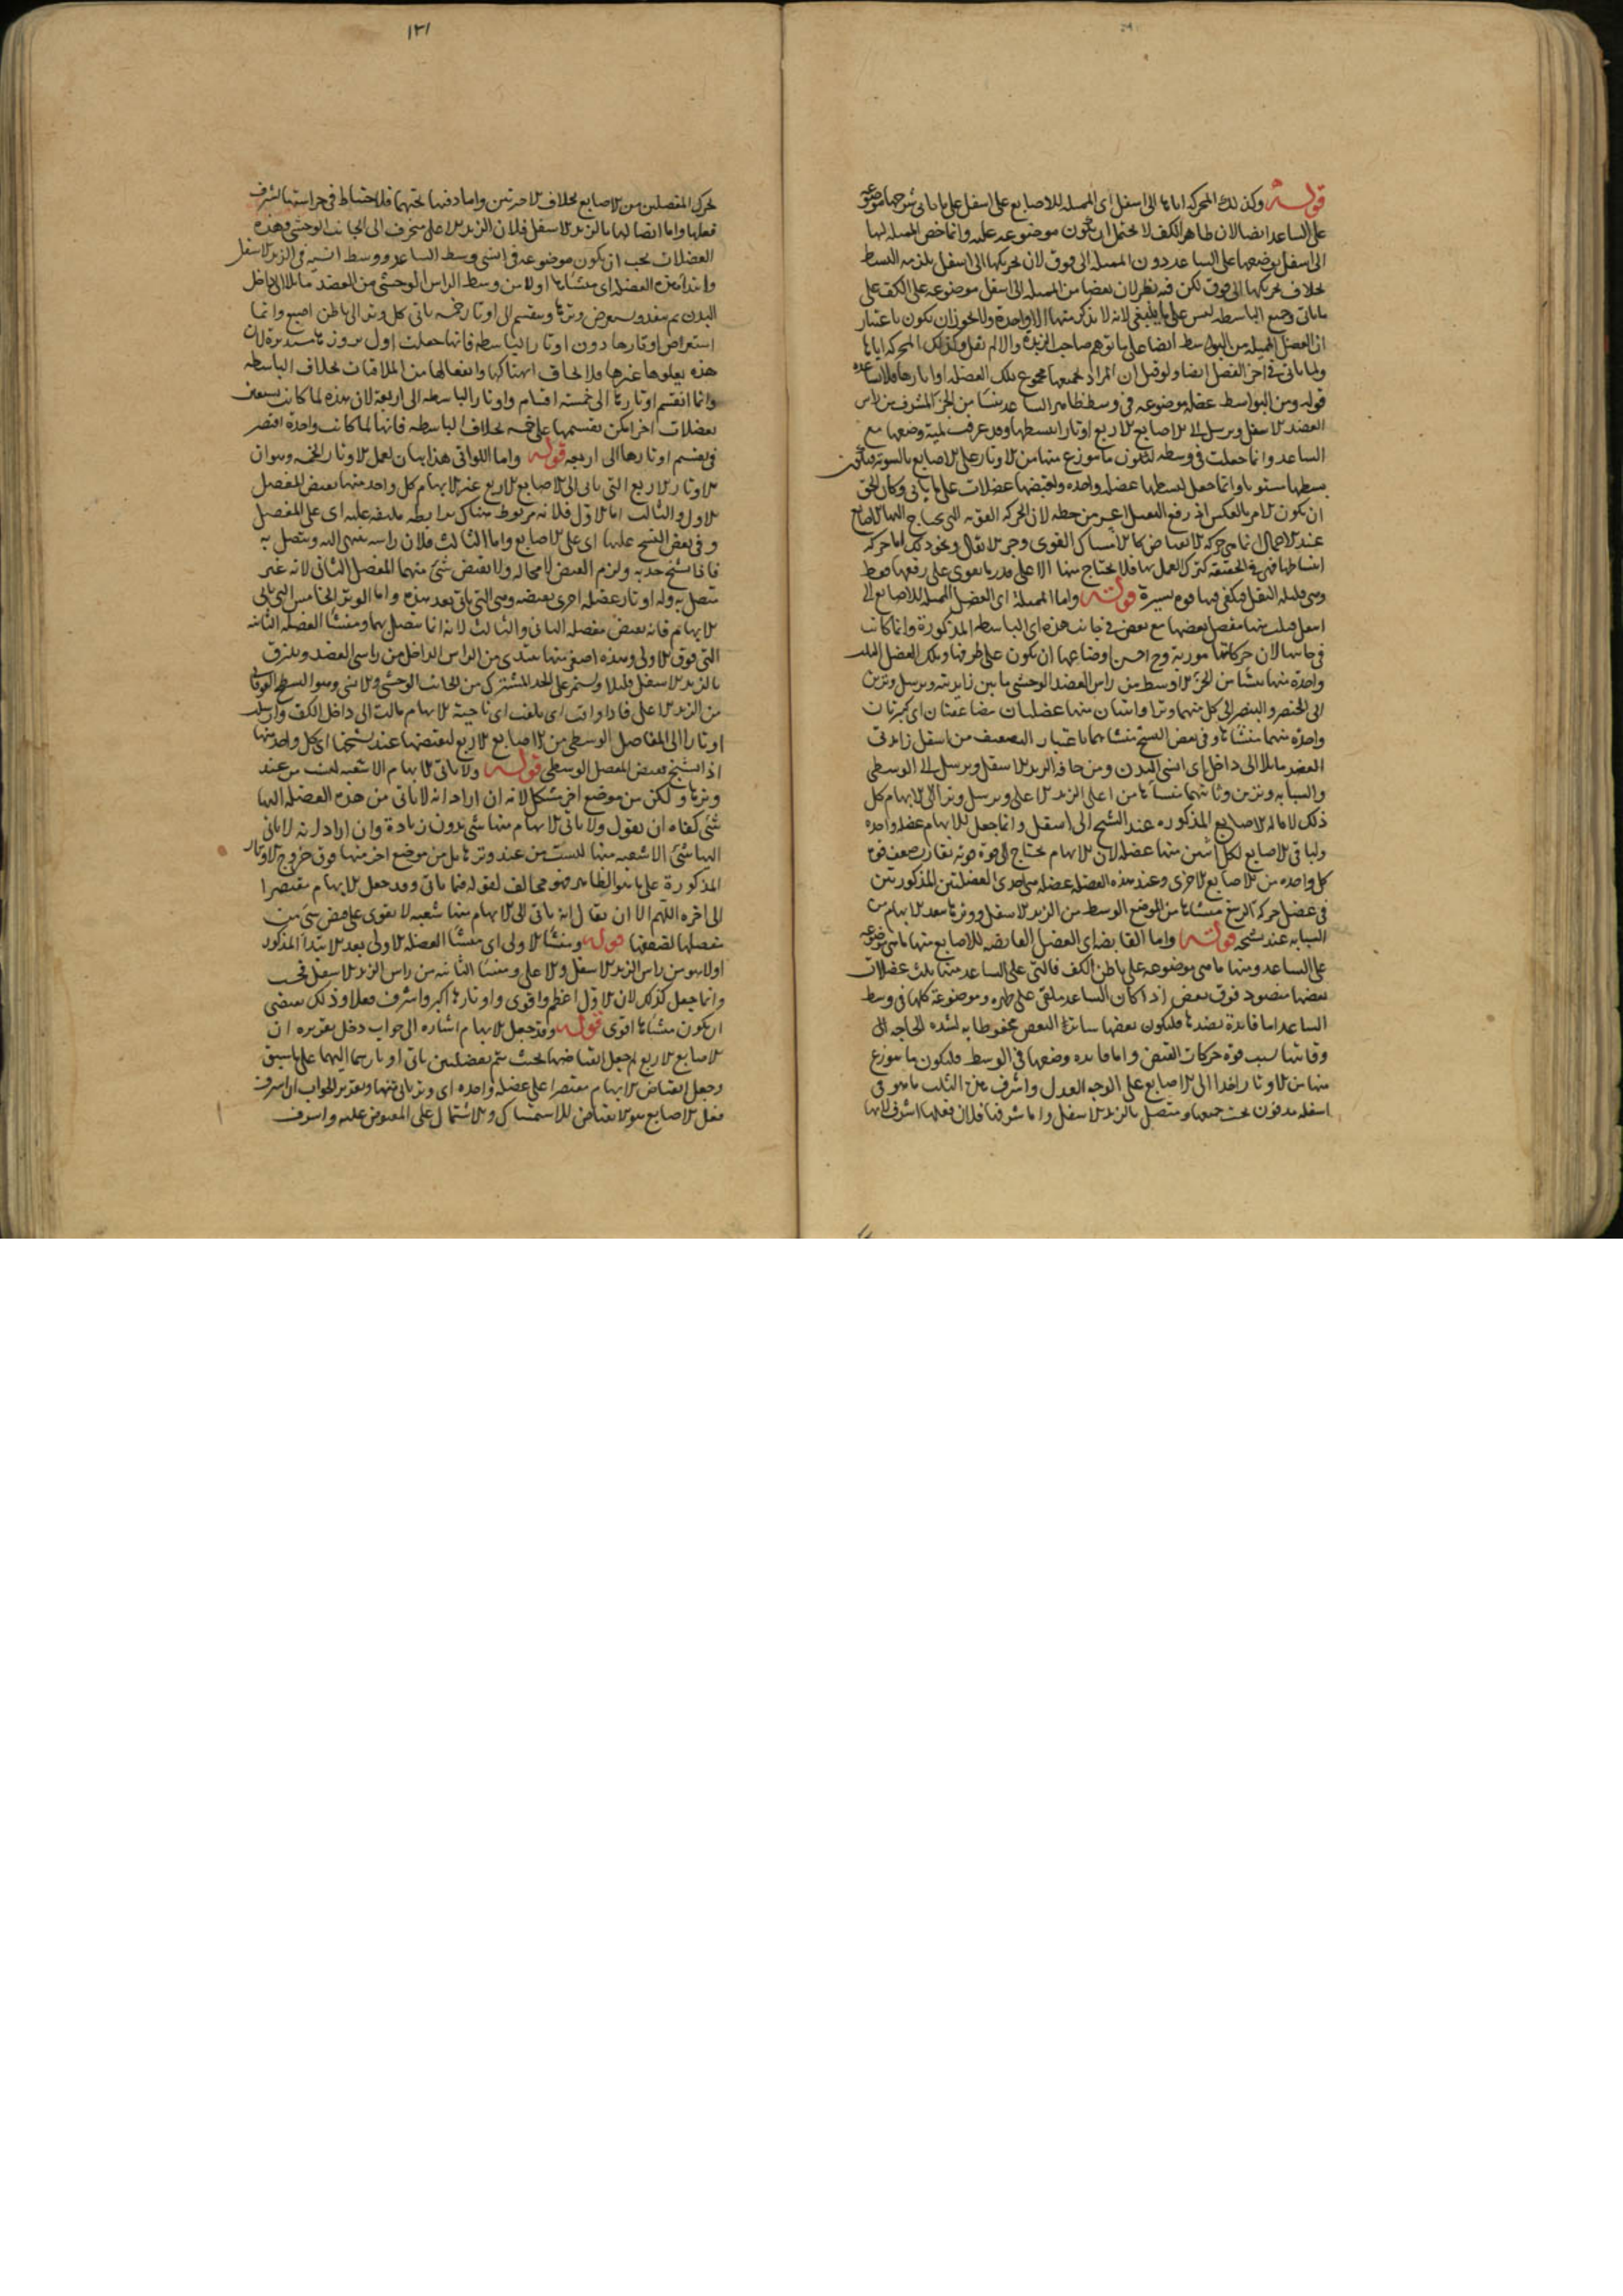 قوله وكذلك المحركة اياها الى اسفل اى المميله للاصابع على اسفل على ما ياتى شرحها موضوعه
على الساعد ايضا لان ظاهر الكف لا يحتمل ان يكون موضوعه عليه وانما خص المميله لها
الى اسفل بوضعها على الساعد دون المميله الى فوق لان تحريكها الى اسفل يلزمه البسط
بخلاف تحريكها الى فوق لكن فيه نظر لان بعضا من المميله الى اسفل موضوعه على الكف على
ما ياتى وجمع الباسطه ليس على ما ينبغى لانه لا يذكر منها الا واحدة ولا يجوز ان يكون باعتبار
ان العضل المميله من البواسط ايضا على ما توهم صاحب والا لم يقل وكذلك المحركه اياها
ولما ياتى فى اخر الفصل ايضا ولو قيل ان المراد بجميعها مجموع تلك العضله اوتارها فلا
قوله ومن البواسط عضله موضوعه فى وسط ظاهر الساعد ينشا من الجزء المشرف من راس
العضد الاسفل ويرسل الى الاصابع الاربع اوتارا يبسطها وقد عرفت لمية وضعها مع
الساعد وانما جعلت فى وسطه لتكون ما موزع منها من الاوتار على الاصابع بالسويه فيكون
بسطها مستويا وانما جعل لبسطها عضله واحده ولقبضها عضلات على ما ياتى وكان الحق
ان يكون الامر بالعكس اذ رفع الثقيل اعسر من حطه لان الحركه القويه التى يحتاج اليها الاصابع
عند الاعمال انما هى حركه الانقباض كالامساك القوى وجر الاثقال ونحو ذلك اما حركه
انبساطها فهى فى الحقيقه كترك العمل بها فلا يحتاج منها الا على قدر ما يقوى على رفعها فقط
وهى قليله الثقل فيكفى فيها قوه يسيرة قوله واما المميلة اى العضل المميله للاصابع الى
اسفل فثلث منها متصل بعضها مع بعض فى جانب هذه اى الباسطه المذكورة وانما كانت
فى جانبها لان حركاتها موربة وح احسن اوضاعها ان يكون على طرفها وتلك العضل الثلث
واحدة منها ينشا من الجزء الاوسط من راس العضد الوحشى ما بين زايدتيه ويرسل وترين
الى الخنصر والبنصر الى كل منهما وترا واثنتان منها عضلتان مضاعفتان اى كبيرتان
واحدة منهما منشاها وفى بعض النسخ منشاهما باعتبار التضعيف من اسفل زايدتى
العضد مايلا الى داخل اى انسى البدن ومن حافه الزند الاسفل ويرسل الى الوسطى
والسبابه وترين وثانيتهما منشاها من اعلى الزند الاعلى ويرسل وترا الى الابهام كل
ذلك لاماله الاصابع المذكوره عند الشيخ الى اسفل وانما جعل للابهام عضله واحده
ولباقى الاصابع لكل اثنين منها عضله لان الابهام يحتاج الى قوة قويه تقارب ضعف قوة
كل واحده من الاصابع الاخرى وعند هذه العضله عضله هى احدى العضلتين المذكورتين
فى عضل حركه الرسغ منشاها من الموضع الوسط من الزند الاسفل ووترها يبعد الابهام من
السبابه عند شيخه قوله واما القابضه اى العضل القابضه للاصابع منها ما هى موضوعه
على الساعد ومنها ما هى موضوعه على باطن الكف فالتى على الساعد منها ثلث عضلات
بعضها منضود فوق بعض اذا كان الساعد ملقى على ظهره وموضوعة كلها فى وسط
الساعد اما فايدة نضدها فليكون بعضها ساترة البعض محفوظا به لشده الحاجه الى
وقايتها بسبب قوة حركات القبض واما فايده وضعها فى الوسط فليكون ما موزع
منها من الاوتار اخذا الى الاصابع على الوجه العدل واشرف هذه الثلث ما هو فى
اسفله مدفون تحت جميعها ومتصل بالزند الاسفل واما شرفها فلان فعلها اشرف لانها
١٣١
تحرك المفصلين من الاصابع بخلاف الاخرتين واما دفنها تحتهما فلاحتياط فى حراستها لشرف
فعلها واما اتصالها بالزند الاسفل فلان الزند الاعلى منحرف الى الجانب الوحشى وهذه
العضلات يجب ان يكون موضوعه فى انسى وسط الساعد ووسط انسيه فى الزند الاسفل
وابتدا هذه العضله اى منشاها اولا من وسط الراس الوحشى من العضد مايلا الى داخل
البدن ثم ينفذ ويستعرض وترها وينقسم الى اوتار خمسه ياتى كل وتر الى باطن اصبع وانما
استعراض اوتارها دون اوتار الباسطه فانها جعلت اول بروزها مستديرة لان
هذه يعلوها غيرها فلا يخاف انهتاكها وانفعالها من الملاقيات بخلاف الباسطه
وانما انقسم اوتارها الى خمسة اقسام واوتار الباسطه الى اربعة لان هذه لما كانت
بعضلات اخر امكن تقسيمها على خمسه بخلاف الباسطه فانها لما كانت واحدة اقتصر
فى تقسيم اوتارها الى اربعه قوله واما اللواتى هذا بيان لعمل الاوتار الخمسه وهو ان
الاوتار الاربع التى ياتى الى الاصابع الاربع غير الابهام كل واحد منها يقبض المفصل
الاول والثالث اما الاول فلانه مربوط هناك برابطه ملتفه عليه اى على المفصل
وفى بعض النسخ عليها اى على الاصابع واما الثالث فلان راسه ينتهى اليه ويتصل به
فاذا تشنج جذبه ولزم القبض لا محاله ولا يقبض شئ منهما المفصل الثانى لانه غير
متصل به وله اوتار عضله اخرى يقبضه وهى التى ياتى بعد هذه واما الوتر الخامس التى ياتى
الابهام فانه يقبض مفصله الثانى والثالث لانه انما يتصل بهما ومنشا العضله الثانيه
التى فوق الاولى وهذه اصغر منها يبتدى من الراس الداخل من راسى العضد ويلتزق
بالزند الاسفل قليلا ويستمر على الحد المشترك من الجانب الوحشى والانسى وهو السطح الفوقانى
من الزند الاعلى فاذا وافت اى بلغت اى ناحية الابهام مالت الى داخل الكف وارسلت
اوتارا الى المفاصل الوسطى من الاصابع الاربع لتقبضها عند تشنجها اى كل واحد منها
اذا تشنج يقبض المفصل الوسطى قوله ولا ياتى الابهام الا شعبه ليست من عند
وترها ولكن من موضع اخر مشكل لانه ان اراد انه لا ياتى من هذه العضله اليها
شئ كفاه ان يقول ولا ياتى الابهام منها شئ بدون زيادة وان اراد انه لا ياتى
اليها شئ الا شعبه منها ليست من عند وترها بل من موضع اخر منها فوق خروج الاوتار
المذكورة على ما هو الظاهر فهو مخالف لقوله فيما ياتى وقد جعل الابهام مقتصرا
الى اخره اللهم الا ان يقال انه ياتى الى الابهام منها شعبه لا يقوى على قبض شئ من
مفصلها لضعفها قوله ومنشا الاولى اى منشا العضله الاولى بعد الابتدا المذكور
اولا هو من راس الزند الاسفل والاعلى ومنشا الثانيه من راس الزند الاسفل فحسب
وانما جعل كذلك لان الاول اعظم واقوى واوتارها اكبر واشرف فعلا وذلك يقتضى
ان يكون منشاها اقوى قوله وقد جعل الابهام اشاره الى جواب دخل تقريره ان
الاصابع الاربع لم جعل انقباضها بحيث يتم بعضلتين ياتى اوتارهما اليهما على ما سبق
وجعل انقباض الابهام مقتصرا على عضله واحده اى وتر ياتى منها وتقرير الجواب ان اشرف
فعل الاصابع هو الانقباض للاستمساك والاشتمال على المقبوض عليه واشرف